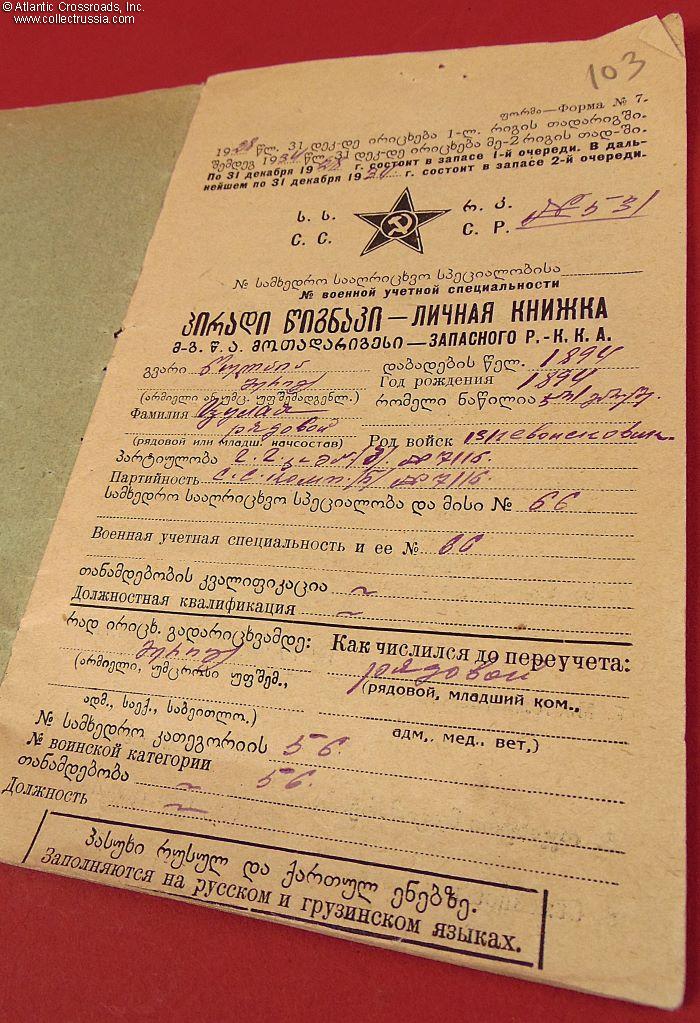 © Atlantic Crossroads, Inc.
www.collectrussia.com
103
ფორმა—Форма № 7.
1928 წლ. 31 დეკ-დე ირიცხება 1-ლ. რიგის თადარიგში.
შემდეგ 1934 წლ. 31 დეკ-დე ირიცხება მე-2 რიგის თად-ში.
По 31 декабря 1928 г. состоит в запасе 1-й очереди. В даль-
нейшем по 31 декабря 1934 г. состоит в запасе 2-й очереди.
ს. ს. რ. კ.
С. С. С. Р. № 531
№ სამხედრო სააღრიცხვო სპეციალობისა
№ военной учетной специальности
პირადი წიგნაკი — ЛИЧНАЯ КНИЖКА
მ-გ. წ. ა. მოთადარიგესი — ЗАПАСНОГО Р.-К.К.А.
გვარი დაბადების წელ. 1894
Год рождения 1894
(არმიელი ან უმც. უფშემადგენლ.) რომელი ნაწილია
Фамилия
рядовой
(рядовой или младш. начсостав) Род войск
პარტიულობა
Партийность № 7116.
სამხედრო სააღრიცხვო სპეციალობა და მისი № 66
Военная учетная специальность и ее № 66
თანამდებობის კვალიფიკაცია ~
Должностная квалификация ~
რად ირიცხ. გადარიცხვამდე: Как числился до переучета:
рядовой
(არმიელი, უმცროსი უფშემ., (рядовой, младший ком.,
ადმ., საექ., საბეითლო.) адм,. мед.. вет,)
№ სამხედრო კატეგორიის 56
№ воинской категории 56.
თანამდებობა ~
Должность ~
პასუხი რუსულ და ქართულ ენებზე.
Заполняются на русском и грузинском языках.